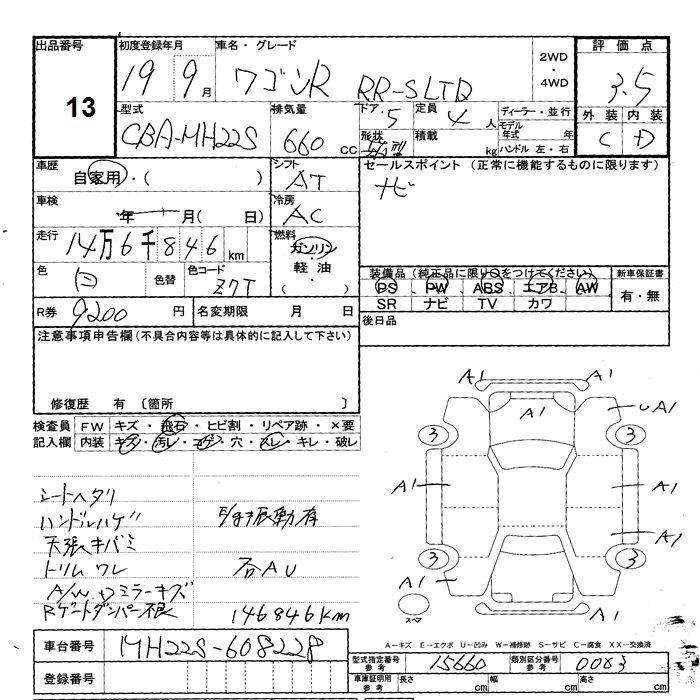 出品番号 初度登録年月 車名・グレード 2WD ・ 4WD 評価点
13 19 9月 ワゴンR RR-SLTD 3.5
型式 排気量 ドア 5 定員 4人 ディーラー・並行 外装 内装
CBA-MH22S 660 CC 形状 積載 kg モデル年式 年 ハンドル 左・右 C D
車歴 自家用・( ) シフト AT セールスポイント (正常に機能するものに限ります)
車検 年 月( 日) 冷房 AC ナビ
走行 14万6千846km 燃料 ガソリン・軽油・( )
色 白 色替 色コード Z7T
装備品 (純正品に限り○をつけてください) 新車保証書
PS PW ABS エアB AW 有・無
SR ナビ TV カワ
R券 9200円 名変期限 月 日 後日品
注意事項申告欄(不具合内容等は具体的に記入して下さい)
修復歴 有 〔箇所 〕
検査員 FW キズ・飛石・ヒビ割・リペア跡・×要
記入欄 内装 キズ・汚レ・コゲ・穴・スレ・キレ・破レ
シートヘタリ
ハンドルハゲ
天張キバミ
トリムワレ 石AU
ミラーキズ
Rゲートダンパー不良 146846km
A1 A1
A1 UA1
3 3
A1 A1
A1
3 3
A1
スペア A1
A-キズ E-エクボ U-凹み W-補修跡 S-サビ C-腐食 XX-交換済
車台番号 MH22S-608228
型式指定番号 参考 15660 類別区分番号 参考 0083
登録番号 車庫証明用 参考 長さ cm 幅 cm 高さ cm